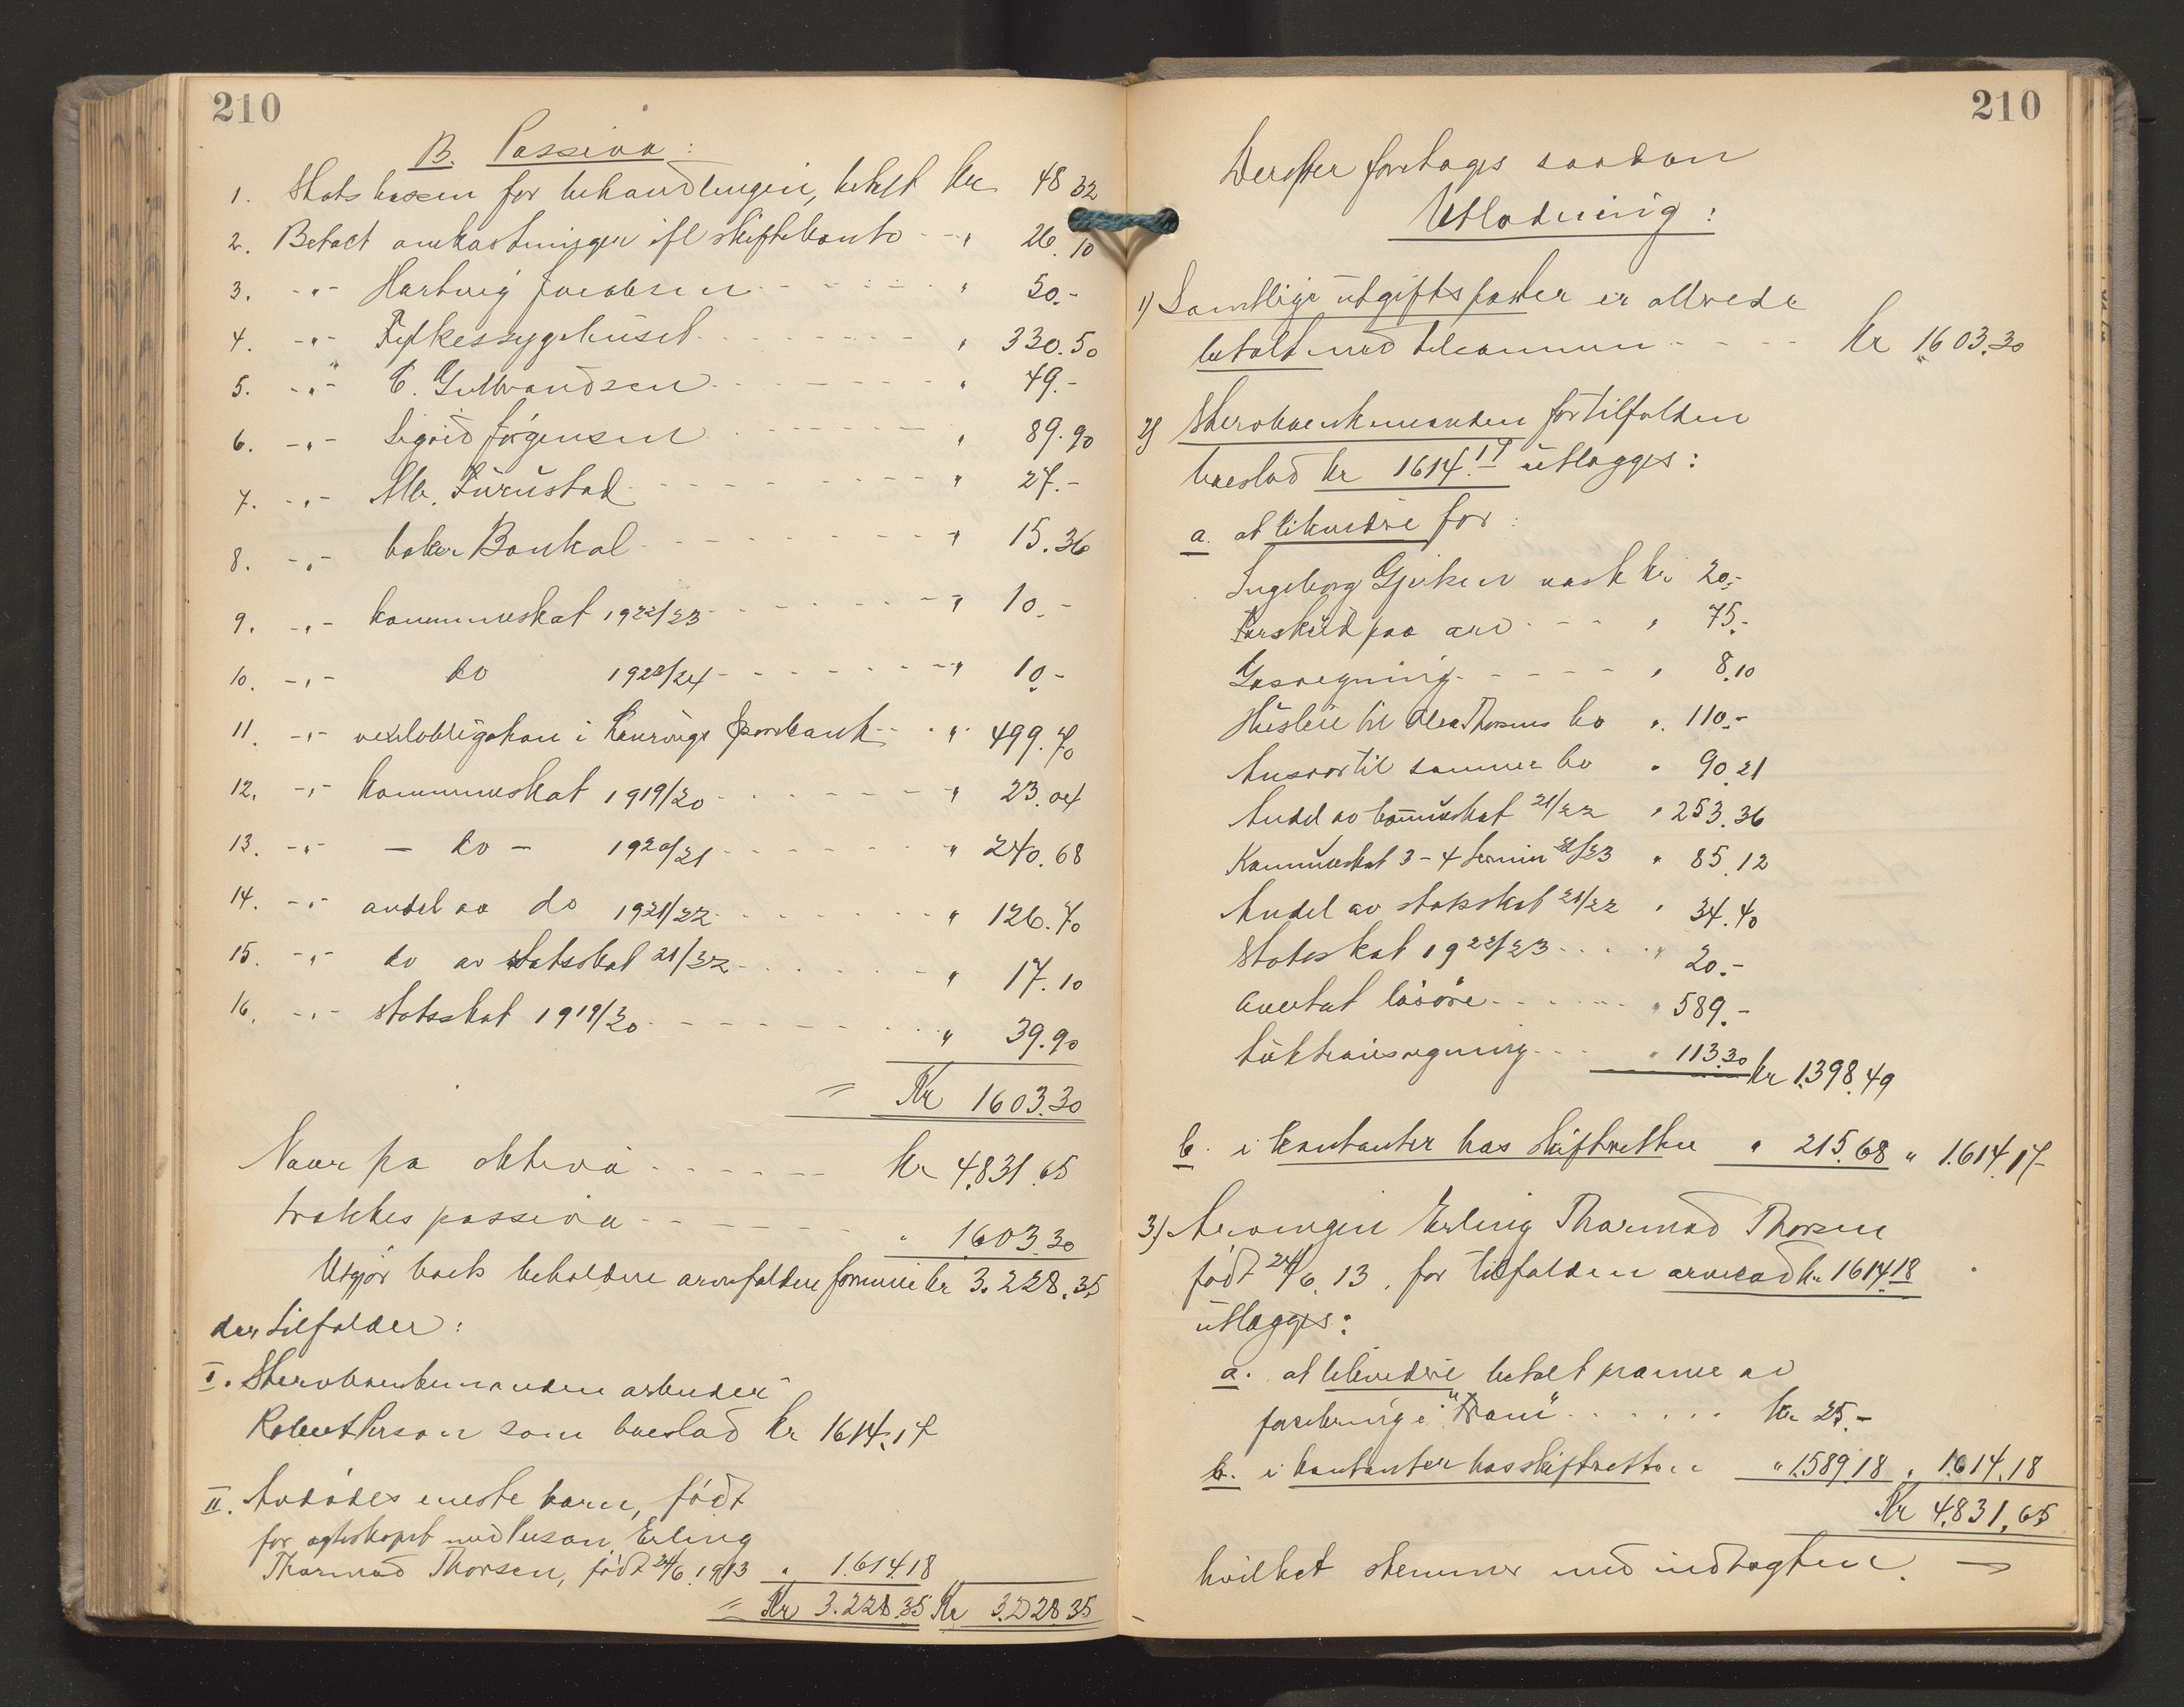 210
B. Passiva:
1. Statskassen for behandlingen, betalt kr 48 32
2. Betalt omkostninger ifl skiftekonto - - " 26.10
3. -"- Hartvig Jacobsen - - - " 50.-
4. -"- Fylkessygehuset - - - " 330.50
5. -"- C. Gulbrandsen - - - " 49.-
6. -"- Sigrid Jørgensen - - - " 89.90
7. -"- Alb. Furustad - - - " 27.-
8. -"- baker Bonkal - - - " 15.36
9. -"- kommuneskat 1922/23 - - - " 10.-
10. -"- do 1923/24 - - - " 10.-
11. -"- vexelobligation i sparebank - - " 499.70
12. -"- kommuneskat 1919/20 - - - " 23.04
13. -"- - do - 1920/21 - - - " 240.68
14. -"- andel av do 1921/22 - - - " 126.70
15. -"- do av statsskat 21/22 - - - " 17.10
16. -"- statsskat 1919/20 - - - " 39.90
= Kr 1603.30
Naar fra aktiva - - - kr 4.831.65
trækkes passiva - - - " 1.603.30
Utgjør boets beholdne arvefaldne formue kr 3.228.35
der tilfalder:
I. Sterboenkemanden arbeider
Robert Person som boeslod kr 1614.17
II. Avdødes eneste barn, født
før egteskapet med Person, Erling
Tharmod Thorsen, født 24/6 1913 " 1.614.18
= Kr 3.228.35 Kr 3.228.35
210
Derefter foretages saadan
Utlodning:
1) Samtlige utgiftsposter er allerede
betalt med tilsammen - - - - Kr 1603.30
2) Sterboenkemanden for tilfalden
boeslod kr 1614.17 utlægges:
a. at likvidere for:
Ingeborg Gjerken vask kr 20.-
Forskud paa arv - - - " 75.-
Gasregning - - - - " 8.10
Husleie til Olea Thorsens bo " 110.-
Ansvar til samme bo " 90.21
Andel av kommuneskat 21/22 " 253.36
Kommuneskat 3-4 termin 22/23 " 85.12
Andel av statsskat 21/22 " 34.40
Statsskat 1922/23 - - - " 20.-
overtat løsøre - - - " 589.-
auktionsregning - - - " 113.30 kr 1.398.49
b. i kontanter hos skifteretten " 215.68 " 1.614.17
3) Arvingen Erling Tharmod Thorsen
født 24/6 13, for tilfalden arvelod kr 1614.18
utlægges:
a. at likvidere betalt præmie av
forsikring i "Fram" - - - kr 25.-
b. i kontanter hos skifteretten " 1.589.18 " 1.614.18
Kr 4.831.65
hvilket stemmer med indtægten.